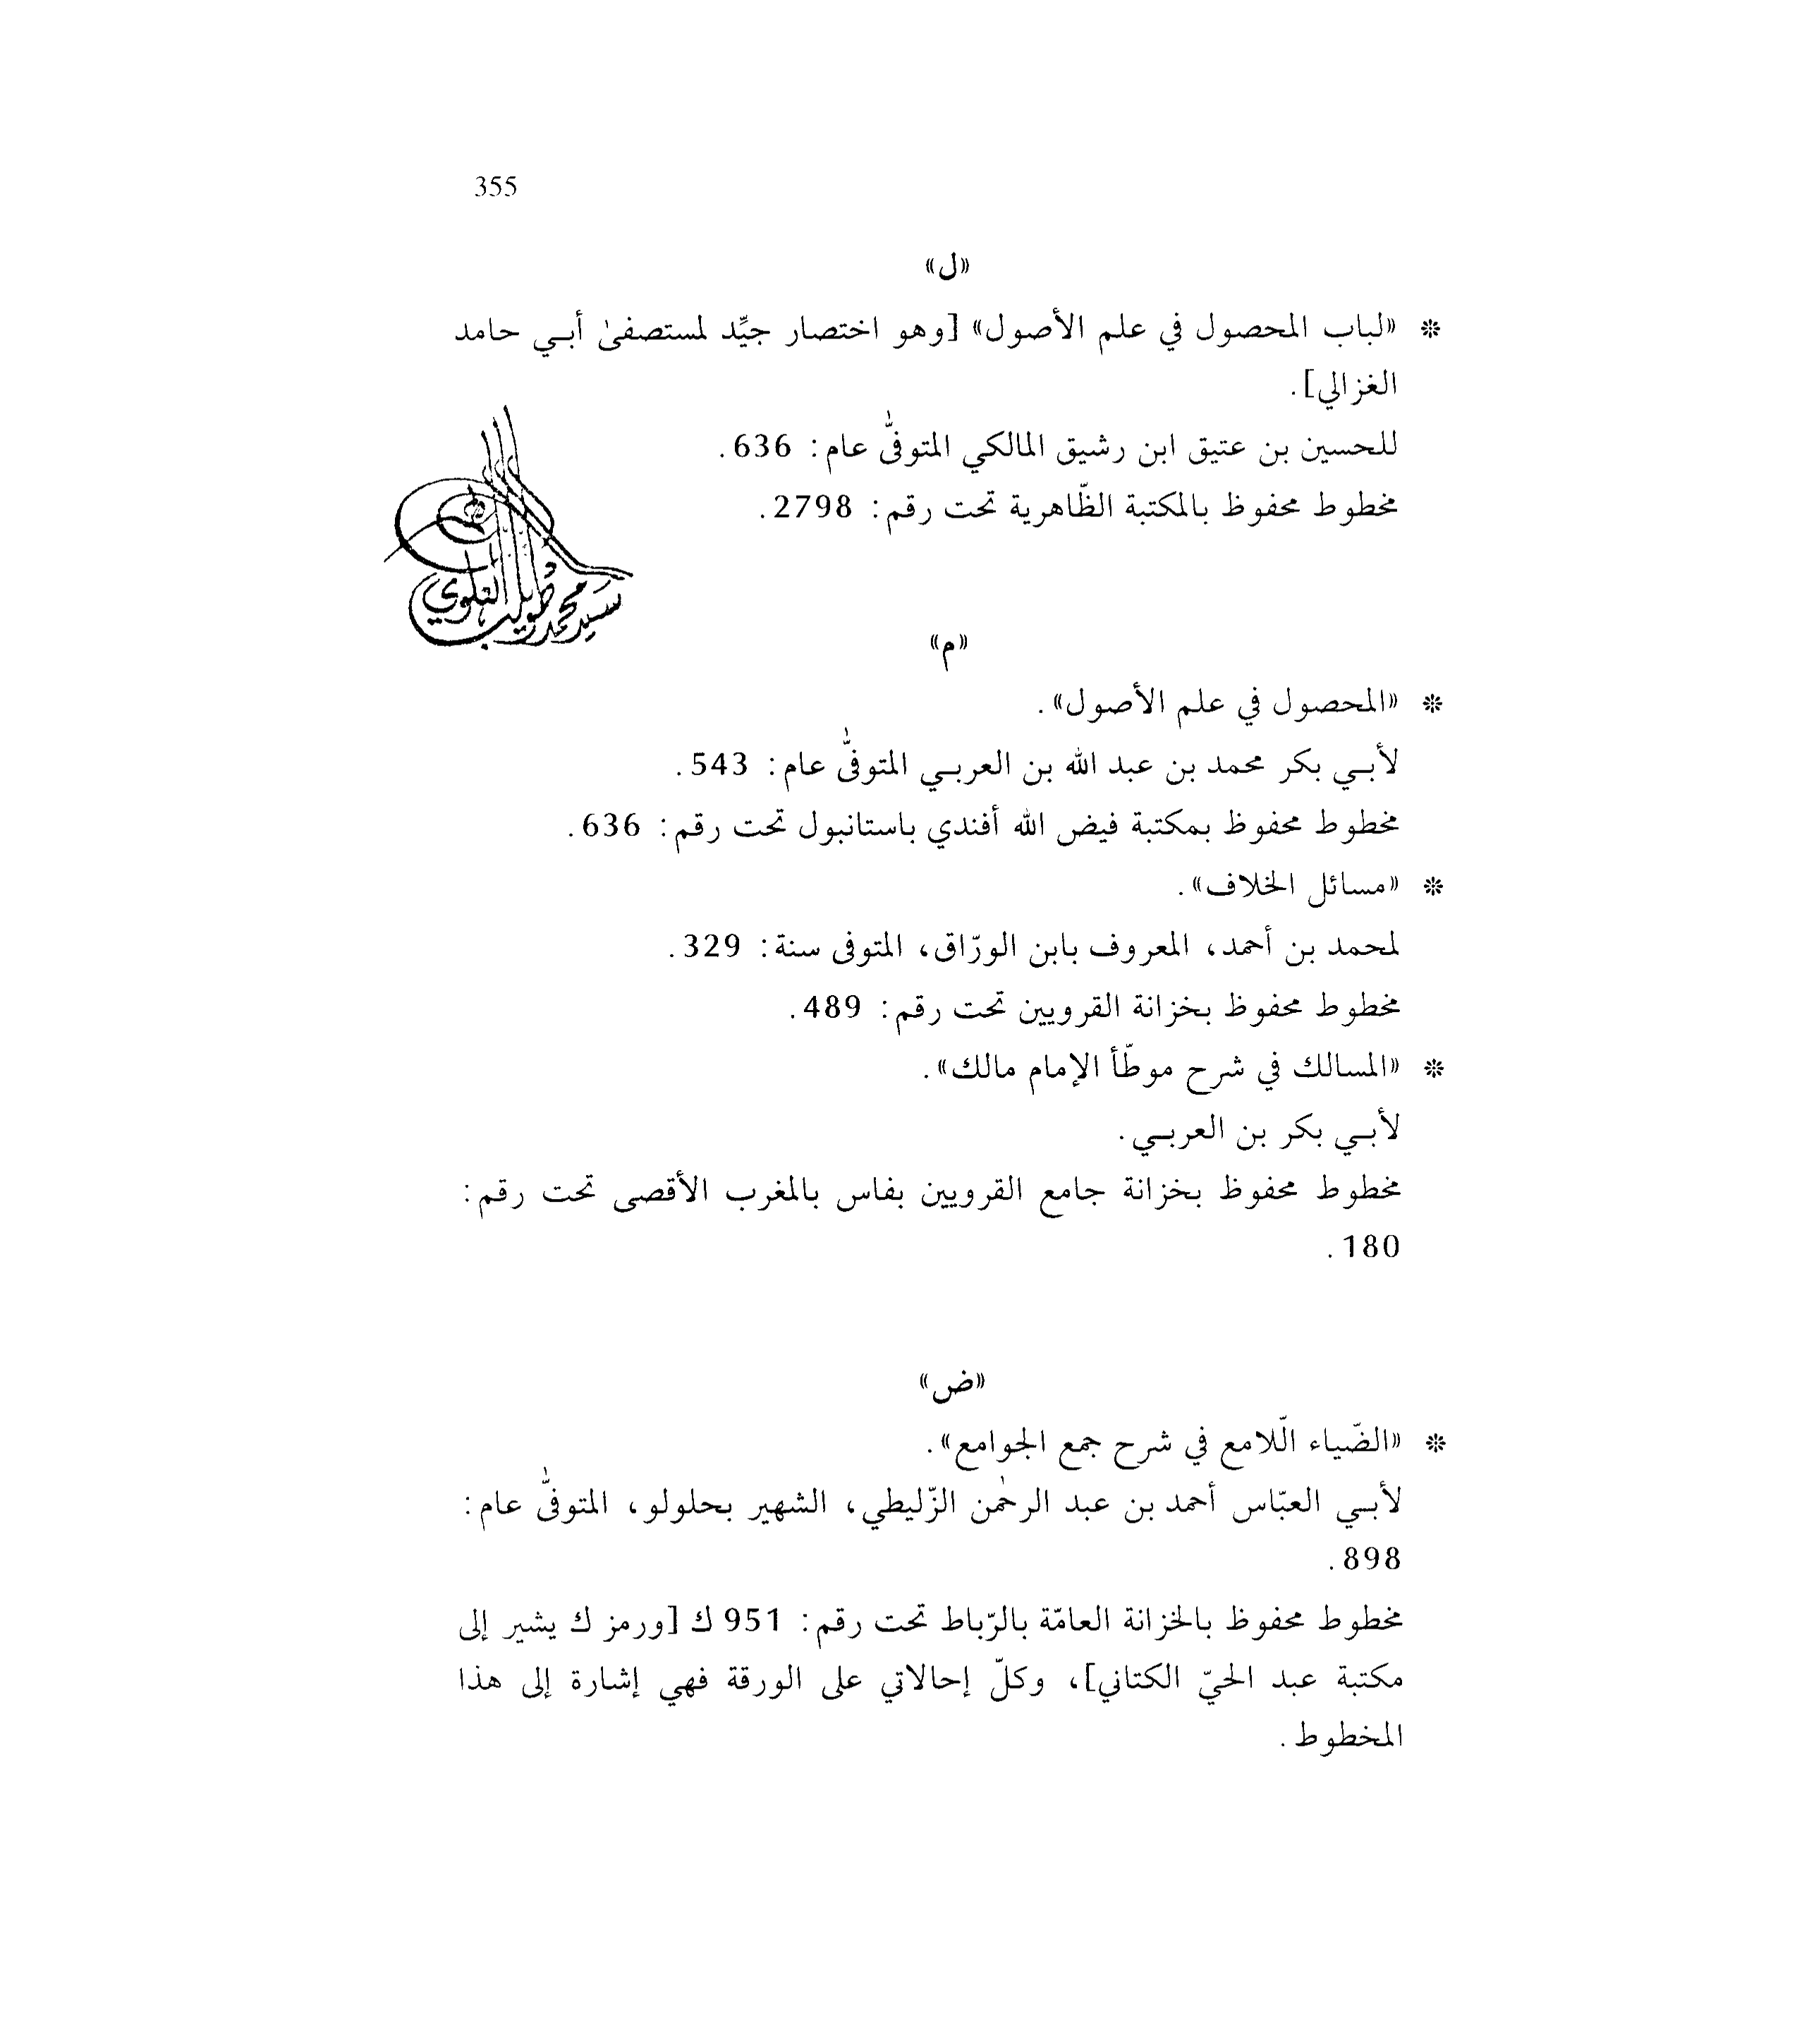 355
«ل»
* «لباب المحصول في علم الأصول» [وهو اختصار جيِّد لمستصفىٰ أبـي حامد
الغزالي].
للحسين بن عتيق ابن رشيق المالكي المتوفىّٰ عام: 636.
مخطوط محفوظ بالمكتبة الظّاهرية تحت رقم: 2798.
سيد محمد طويلب
«م»
* «المحصول في علم الأصول».
لأبـي بكر محمد بن عبد الله بن العربـي المتوفىّٰ عام: 543.
مخطوط محفوظ بمكتبة فيض الله أفندي باستانبول تحت رقم: 636.
* «مسائل الخلاف».
لمحمد بن أحمد، المعروف بابن الورّاق، المتوفى سنة: 329.
مخطوط محفوظ بخزانة القرويين تحت رقم: 489.
* «المسالك في شرح موطّأ الإمام مالك».
لأبـي بكر بن العربـي.
مخطوط محفوظ بخزانة جامع القرويين بفاس بالمغرب الأقصى تحت رقم:
180.
«ض»
* «الضّياء الّلامع في شرح جمع الجوامع».
لأبـي العبّاس أحمد بن عبد الرحمٰن الزّليطي، الشهير بحلولو، المتوفىّٰ عام:
898.
مخطوط محفوظ بالخزانة العامّة بالرّباط تحت رقم: 951 ك [ورمز ك يشير إلى
مكتبة عبد الحيّ الكتاني]، وكلّ إحالاتي على الورقة فهي إشارة إلى هذا
المخطوط.